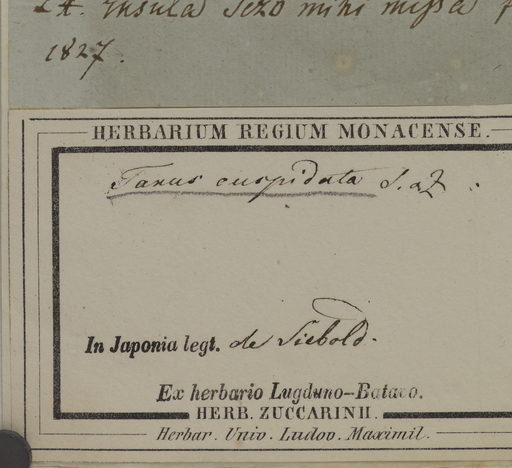 Ex. Insula Jezo mihi missa
1827.
HERBARIUM REGIUM MONACENSE.
Taxus cuspidata S. et Z.
In Japonia legt. de Siebold.
Ex herbario Lugduno-Batavo.
HERB. ZUCCARINII.
Herbar. Univ. Ludov. Maximil.